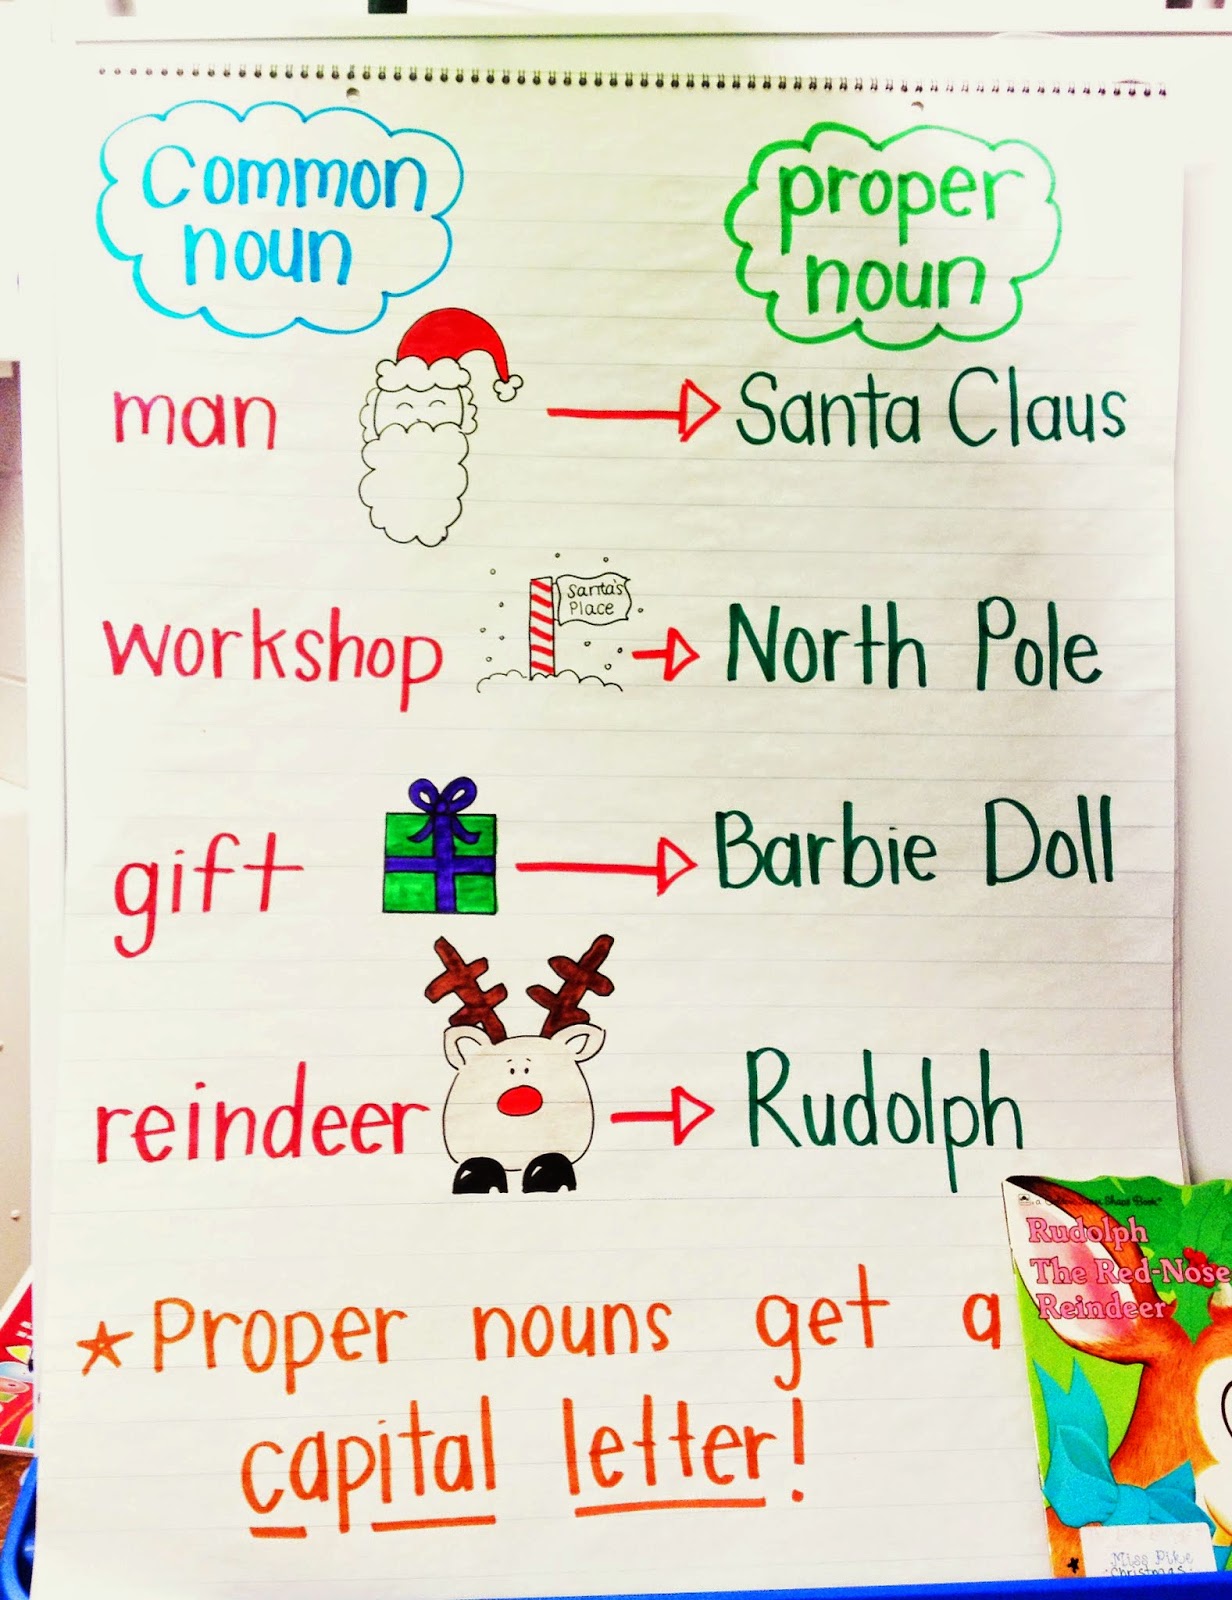 Common
noun
proper
noun
man
Santa Claus
workshop
Santa's
Place
North Pole
gift
Barbie Doll
reindeer
Rudolph
Proper nouns get a
capital letter!
a Shape Book
Rudolph
The Red-Nose
Reindeer
Miss Pike
Christmas